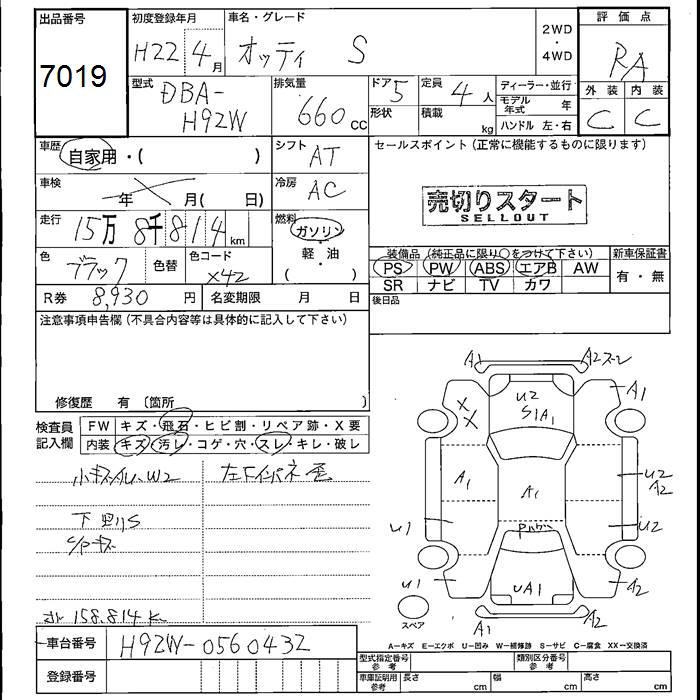 出品番号
7019
初度登録年月
H22 4月
車名・グレード
オッティ S
2WD
・
4WD
評価点
RA
外装 内装
C C
型式
DBA-
H92W
排気量
660 cc
ドア 5
形状
定員 4人
積載 kg
ディーラー・並行
モデル年式 年
ハンドル 左・右
車歴
自家用・( )
シフト AT
セールスポイント(正常に機能するものに限ります)
車検
年 月( 日)
冷房 AC
売切りスタート
SELLOUT
走行
15万 8千 814 km
燃料
ガソリン
・
軽・油
( )
色
ブラック
色替
色コード
X42
装備品(純正品に限り○をつけて下さい)
PS PW ABS エアB AW
SR ナビ TV カワ
新車保証書
有・無
R券 8,930 円
名変期限 月 日
後日品
注意事項申告欄(不具合内容等は具体的に記入して下さい)
修復歴 有〔箇所 〕
検査員
記入欄
FW キズ・飛石・ヒビ割・リペア跡・X要
内装 キズ・汚レ・コゲ・穴・スレ・キレ・破レ
W2
下回りS
158.814K
車台番号 H92W-0560432
登録番号
A1 A2スレ
A1
XX
U2
S1A1
A1
A1
U2
A2
U1
U2
U1
UA1
A2
A1
A2
スペア
A-キズ E-エクボ U-凹み W-補修跡 S-サビ C-腐食 XX-交換済
型式指定番号
参考
類別区分番号
参考
車庫証明用
参考
長さ cm
幅 cm
高さ cm